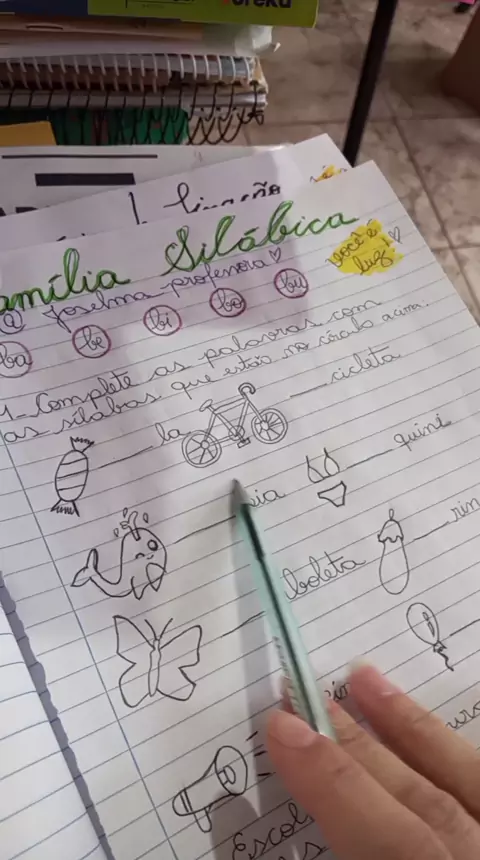 eureka
Ligação
amília Silábica
@ Joselma professora♡
Você é
luz!♡
ba be bi bo bu
1-Complete as palavras com
as sílabas que estão no círculo acima.
___la ___cicleta
___eia ___quini
___boleta ___rin
Escol